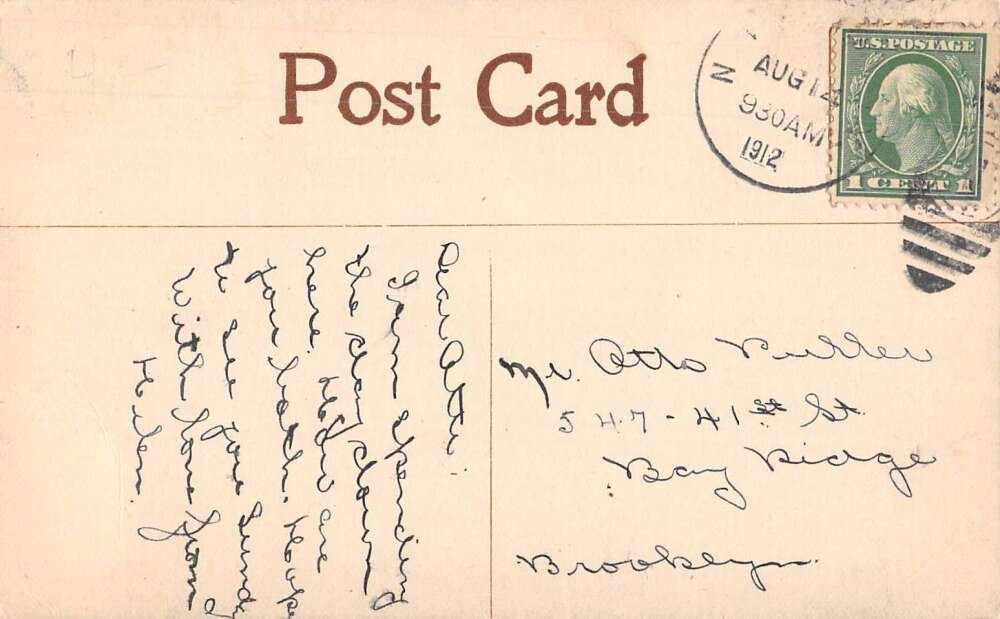 Post Card
N
AUG 12
930AM
1912
U.S. POSTAGE
1 CENT 1
Dear Otto:
I am spending
the day down
here. How are
you both. Hope
to see you Sunday
With love from
Helen.
Mr. Otto
547-41st St.
Bay Ridge
Brooklyn.